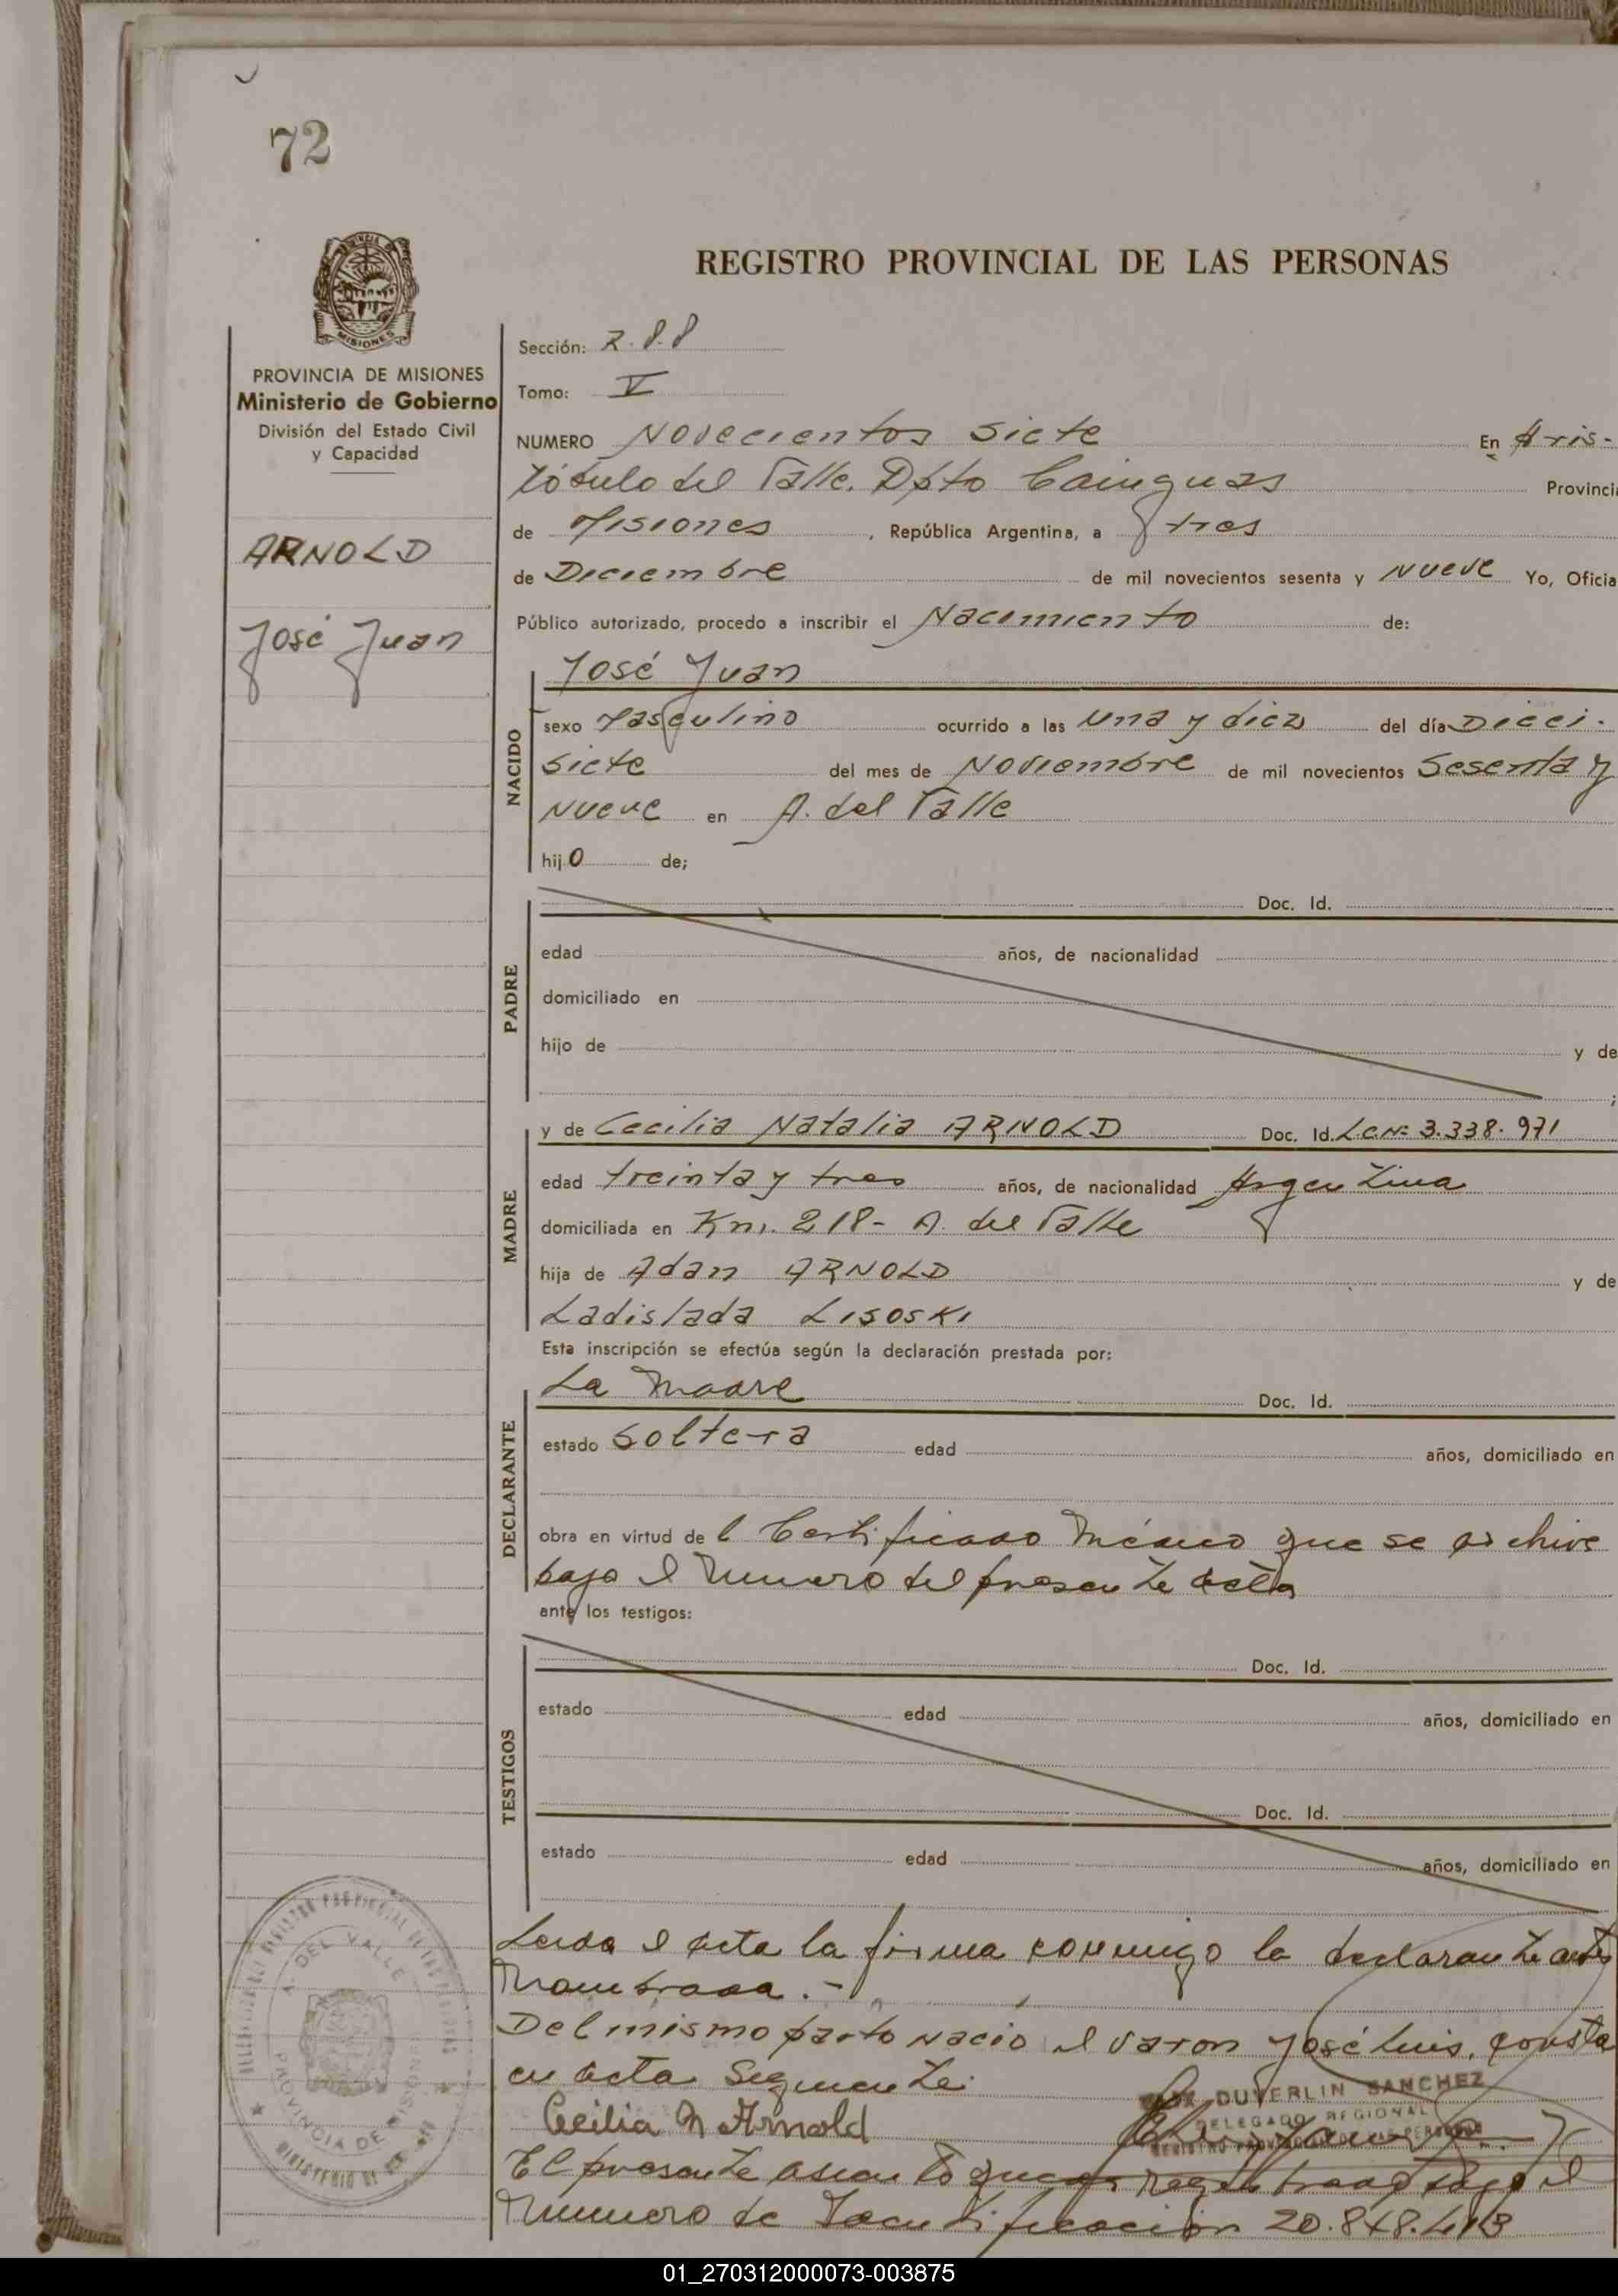 72
REGISTRO PROVINCIAL DE LAS PERSONAS
MISIONES
PROVINCIA DE MISIONES
Ministerio de Gobierno
División del Estado Civil
y Capacidad
ARNOLD
José Juan
Sección: 288
Tomo: V
NUMERO Novecientos siete En Aris-
tóbulo del Valle. Dpto Cainguas Provinci
de Misiones, República Argentina, a tres
de Diciembre de mil novecientos sesenta y Nueve Yo, Oficia
Público autorizado, procedo a inscribir el Nacimiento de:
NACIDO
José Juan
sexo Masculino ocurrido a las una y diez del día Dieci-
siete del mes de Noviembre de mil novecientos Sesenta y
Nueve en A. del Valle
hijo de;
PADRE
Doc. Id.
edad años, de nacionalidad
domiciliado en
hijo de y de
;
MADRE
y de Cecilia Natalia ARNOLD Doc. Id. L.C.Nº 3.338.971
edad treinta y tres años, de nacionalidad Argentina
domiciliada en Km. 218- A. del Valle
hija de Adan ARNOLD y de
Ladislada LISOSKI
Esta inscripción se efectúa según la declaración prestada por:
DECLARANTE
La Madre Doc. Id.
estado Soltera edad años, domiciliado en
obra en virtud del Certificado Médico que se archive
bajo el Numero del presente acta
ante los testigos:
TESTIGOS
Doc. Id.
estado edad años, domiciliado en
Doc. Id.
estado edad años, domiciliado en
Leida el acta la firma conmigo la declarante antes
Nombrada.-
Del mismo parto nació el varon José Luis, consta
en acta Siguiente.
Cecilia N Arnold
DUVERLIN SANCHEZ
DELEGADO REGIONAL
REGISTRO PROVINCIAL DE LAS PERSONAS
El presente asiento queda registrado bajo el
Numero de Identificación 20.848.413
A. DEL VALLE
PROVINCIA DE MISIONES
01_270312000073-003875